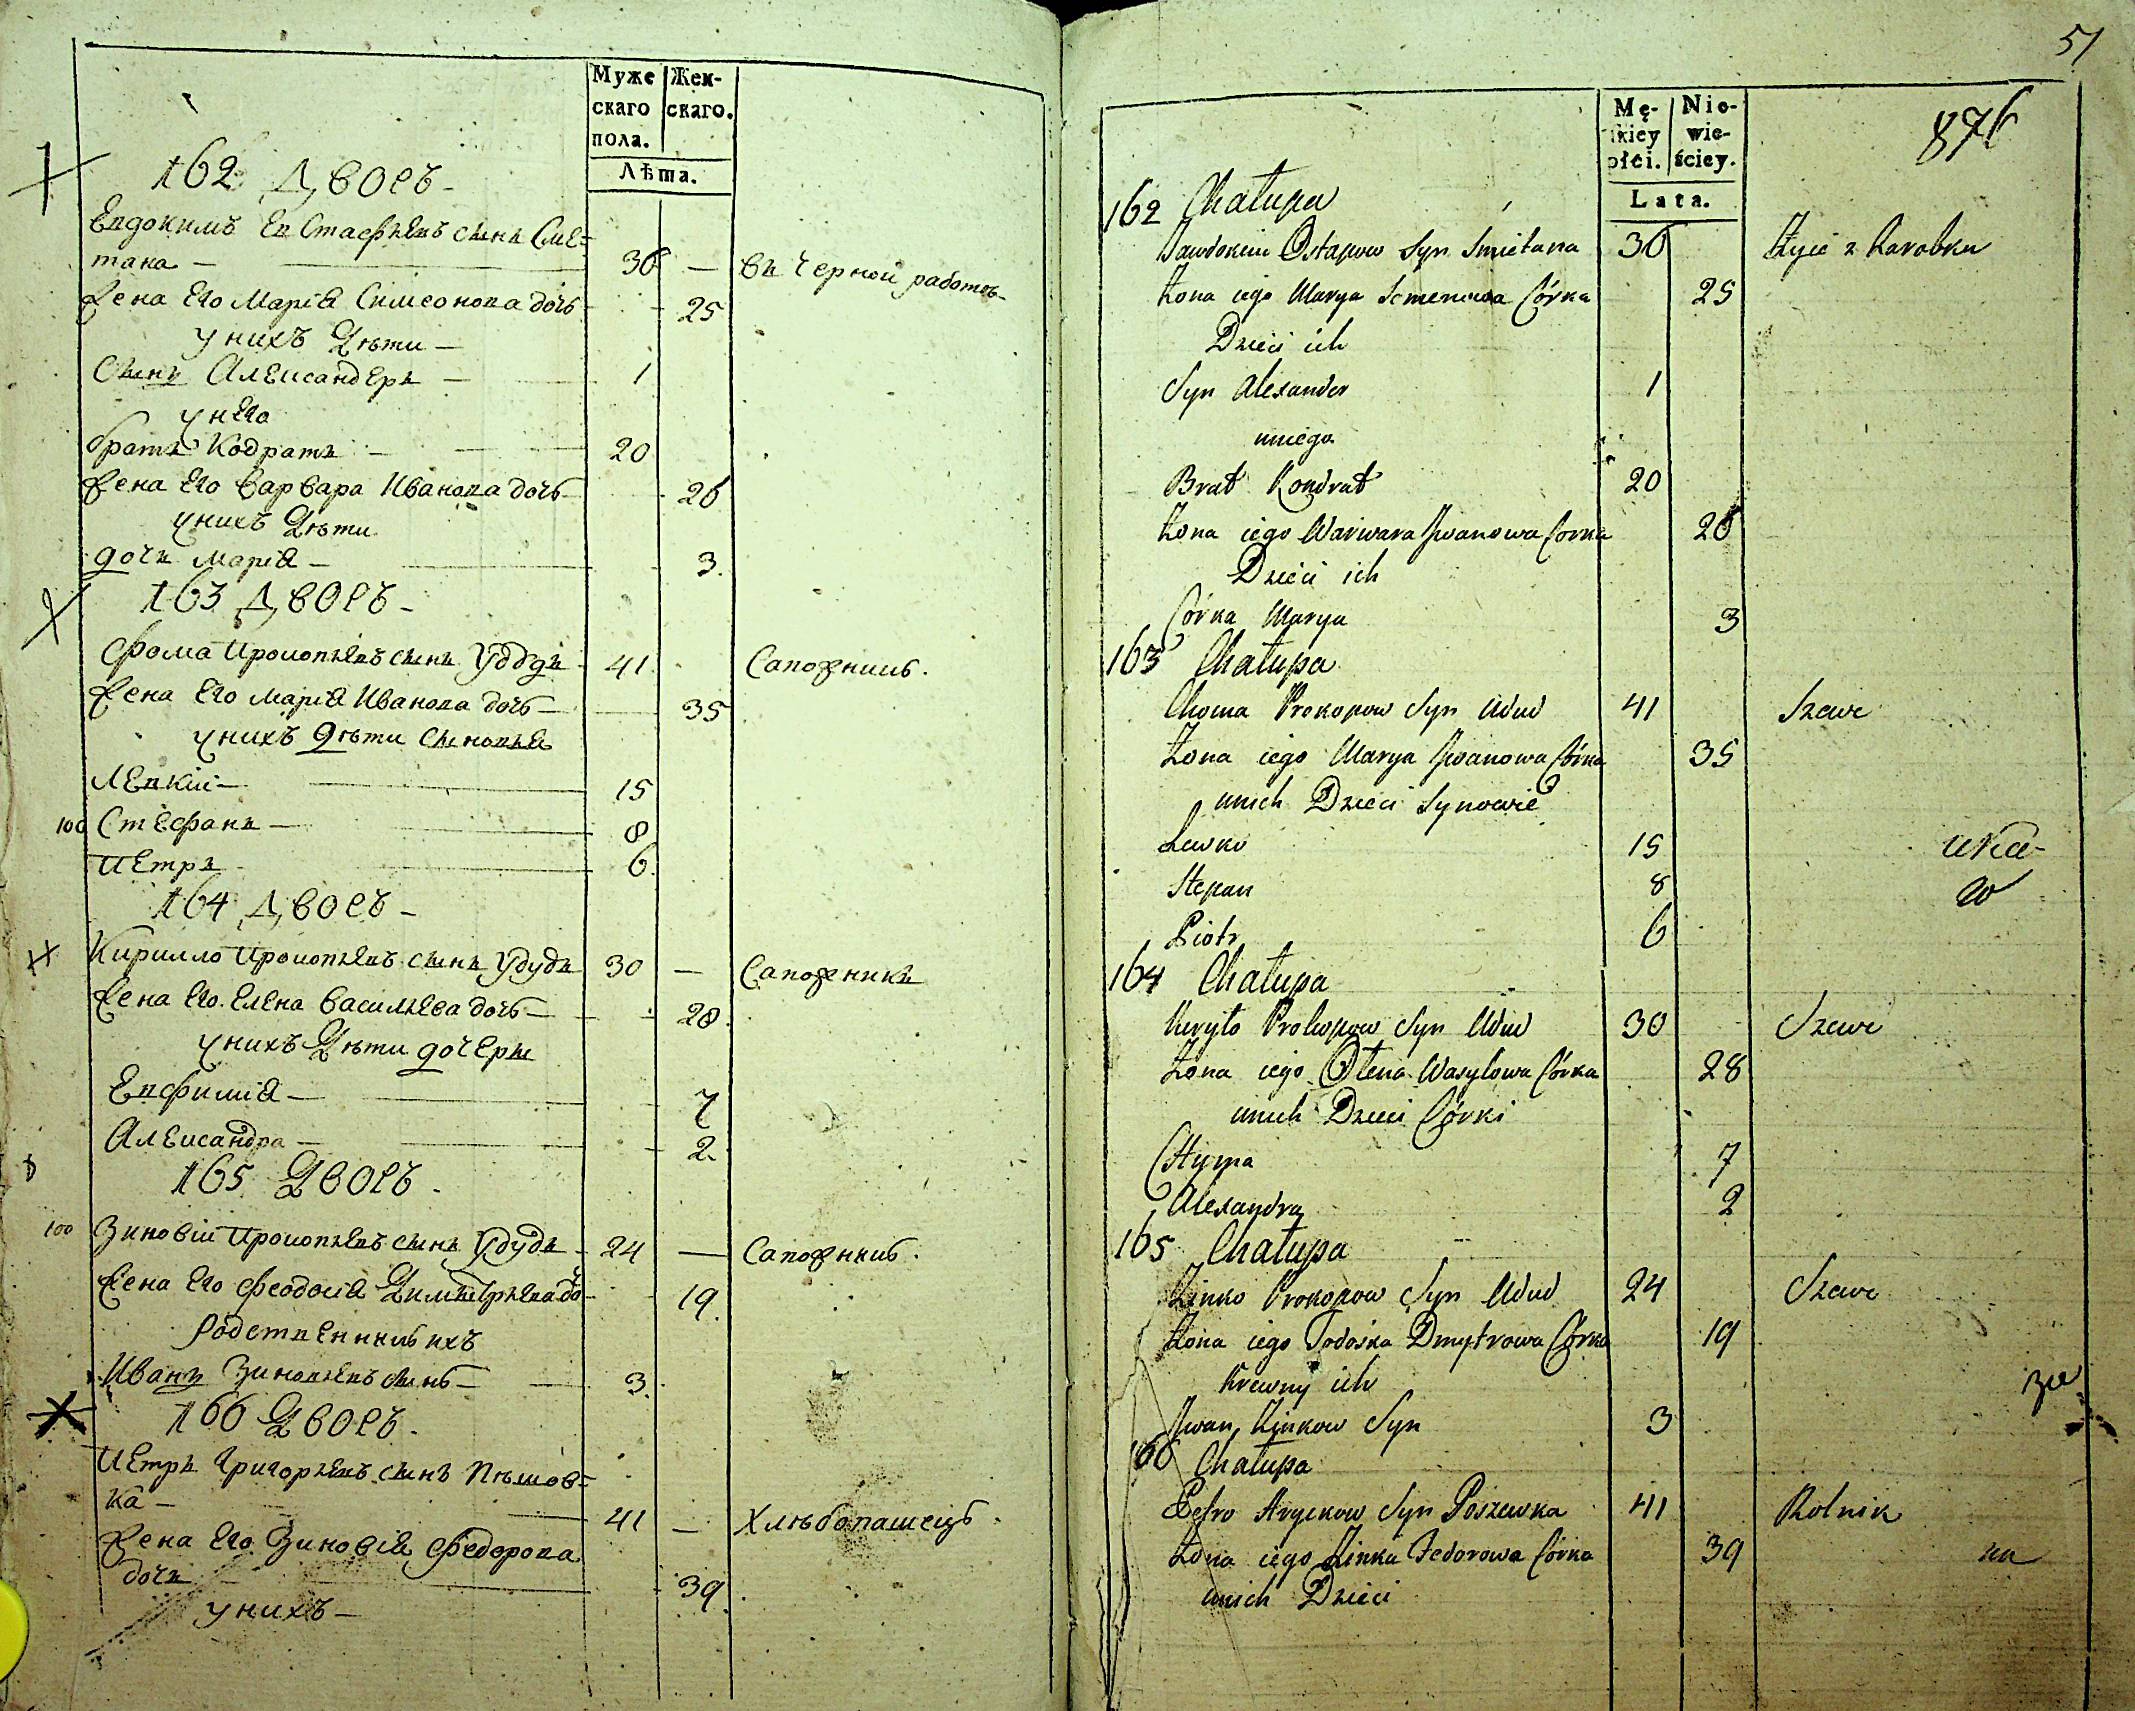 Муже
скаго
пола.
Жен-
скаго.
Лѣта.
162 Дворъ
Евдокимъ Евстафіевъ сынъ Сме-
тана 36 — въ черной работѣ
Жена его Марія Симеонова дочь 25
у нихъ Дѣти
Сынъ Александеръ 1
у него
братъ Кодратъ 20
Жена его Варвара Иванова дочь 26
у нихъ Дѣти
дочь Марія 3.
163 Дворъ
Фома Прокопіевъ сынъ Удудъ 41 Сапожникъ.
Жена его Марія Иванова дочь 35
у нихъ Дѣти сыновья
Левкій 15
100 Стефанъ 8
Петръ 6.
164 Дворъ
Кирилло Прокопіевъ сынъ Удудъ 30 — Сапожникъ
Жена его Елена Васильева дочь 28.
у нихъ Дѣти дочери
Евфимія 7
Александра 2.
165 Дворъ
100 Зиновій Прокопіевъ сынъ Удудъ 24 — Сапожникъ.
Жена его Феодосія Димитріева до 19.
Родственникъ ихъ
Иванъ Зиновіевъ сынъ 3.
166 Дворъ.
Петръ Григоріевъ сынъ Пѣшов-
ка — 41 — Хлѣбопашецъ.
Жена его Зиновія Федорова
дочь 39.
у нихъ —
51
Mę-
kiey
płci.
Nie-
wie-
ściey.
Lata.
876
162 Chałupa
Jawdokim Ostapow Syn Smietana 36 Żyie z Zarobku
Żona iego Marya Semenowa Córka 25
Dzieci ich
Syn Alexander 1
u niego
Brat Kondrat 20
Żona iego Warwara Jwanowa Corka 26
Dzieci ich
Córka Marya 3
163 Chałupa
Choma Prokopow Syn Udud 41 Szewc
Żona iego Marya Jwanowa Córka 35
u nich Dzieci Synowie
Lewko 15
Stepan 8
Piotr 6
164 Chałupa
Kiryło Prokopow Syn Udud 30 Szewc
Żona iego Ołena Wasylowa Córka 28
u nich Dzieci Córki
7
Alexandra 2
165 Chałupa
Zinko Prokopow Syn Udud 24 Szewc
Żona iego Todoska Dmytrowa Córka 19
Krewny ich
Jwan Zinkow Syn 3
166 Chałupa
Petro Hryckow Syn Poszewka 41 Rolnik
Żona iego Zinka Fedorowa Córka 39
u nich Dzieci